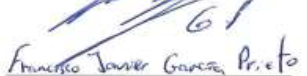 Francisco Javier García Prieto